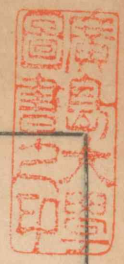 青島大學
圖書之印